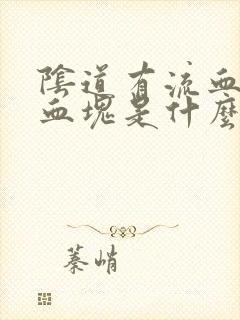 陰道有流血
血塊是什麼
蓁峭